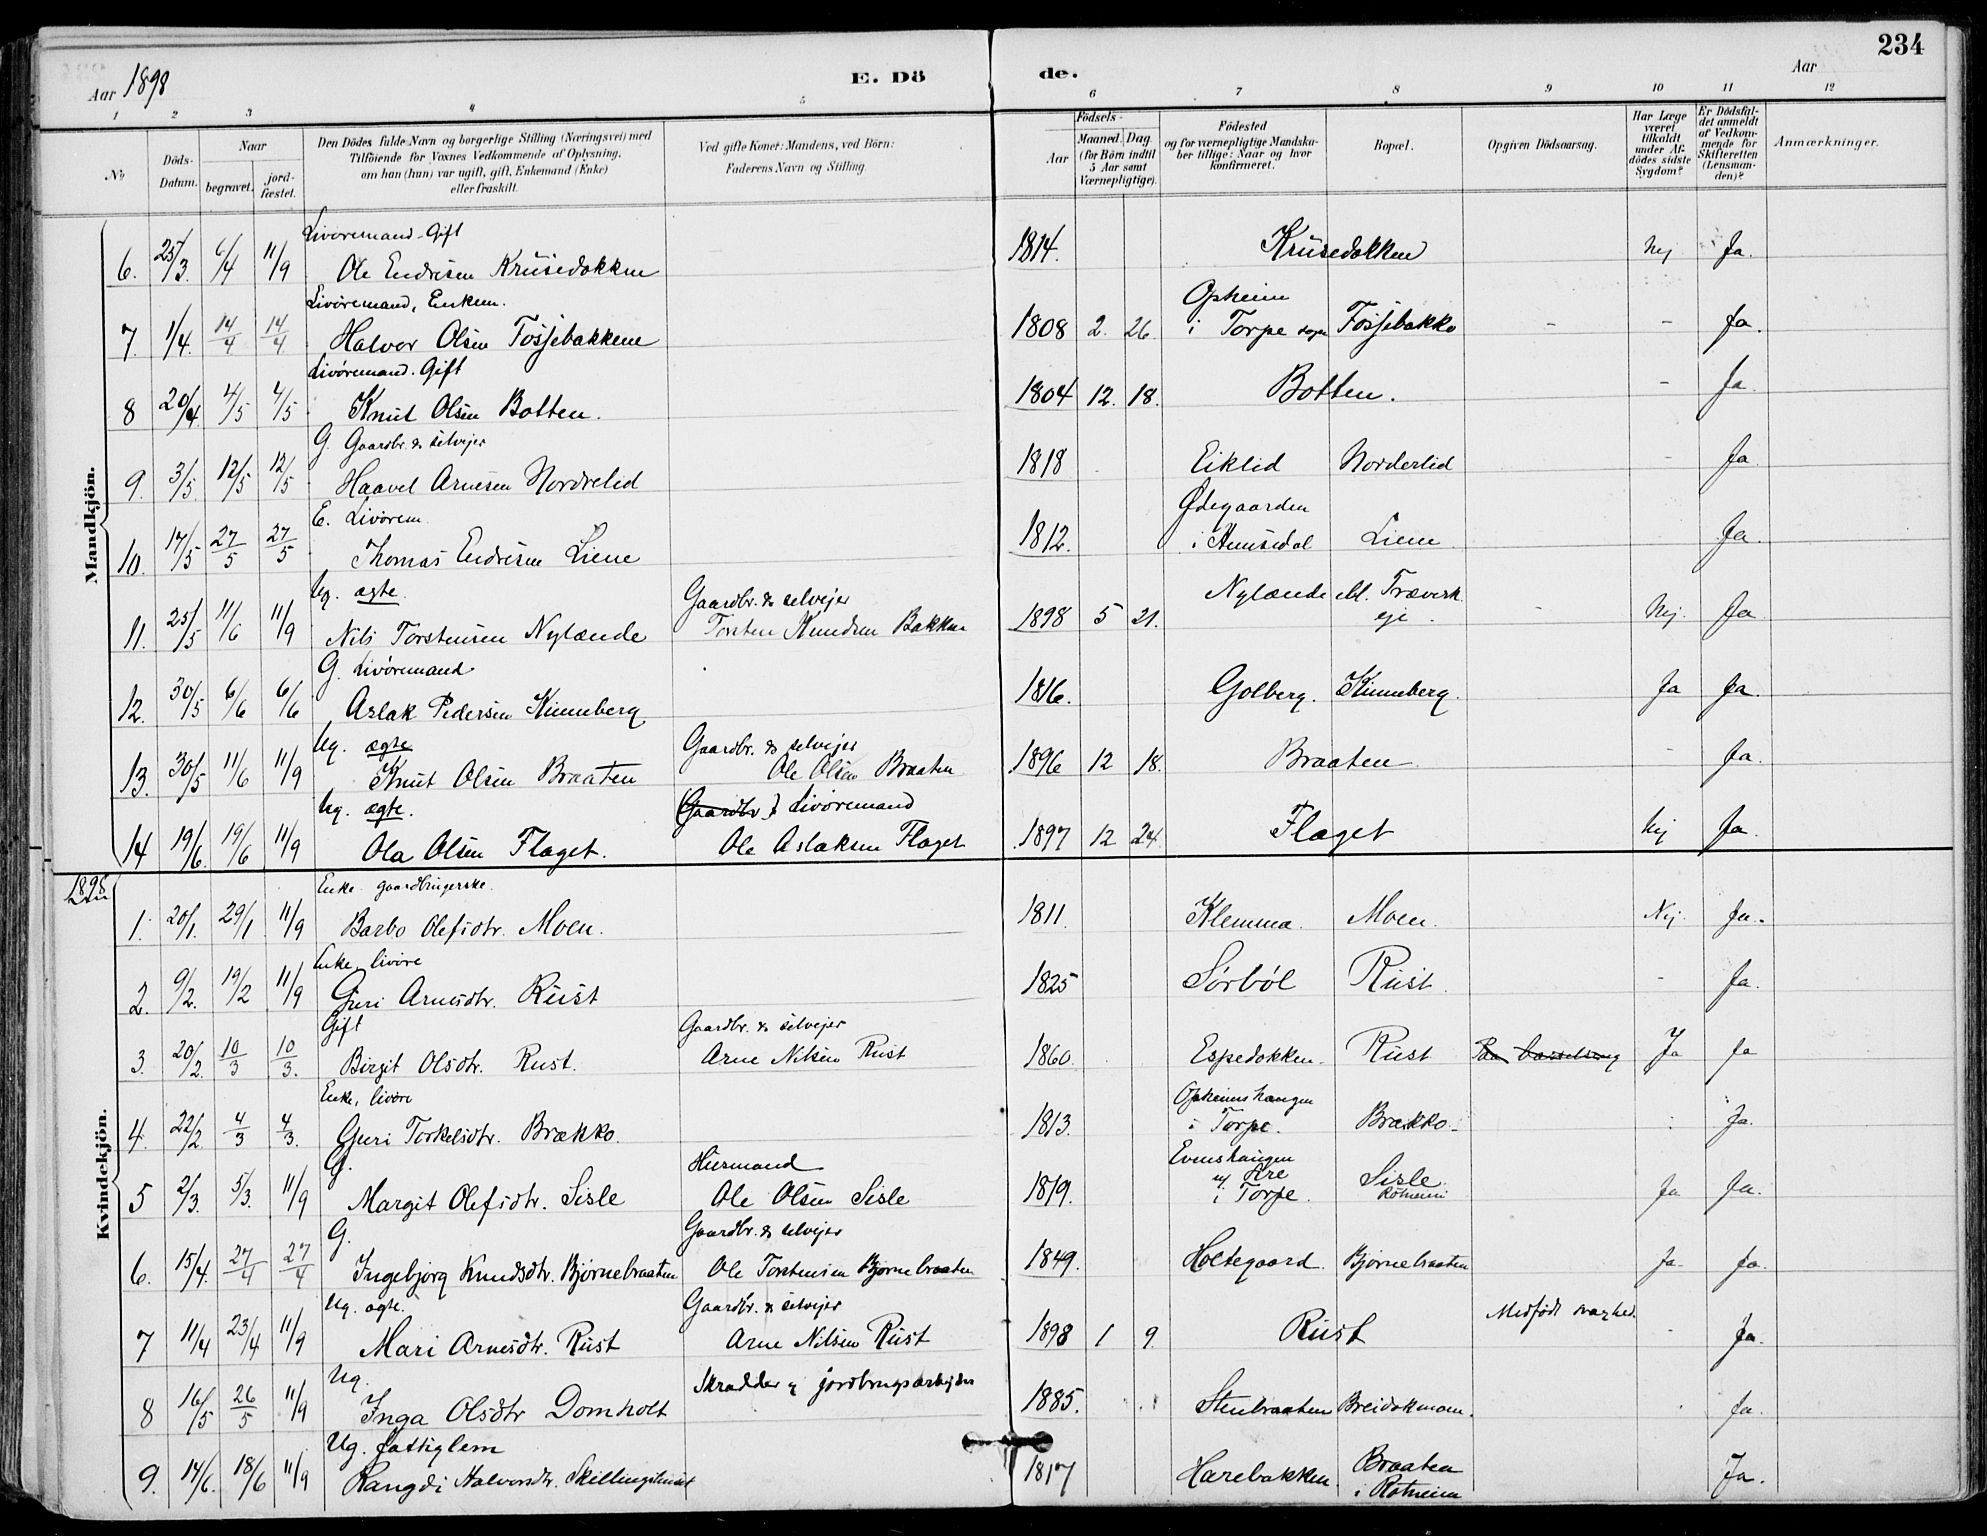 234
Aar 1898
E. Döde.
Aar
1 2 3 4 5 6 7 8 9 10 11 12
No
Döds-Datum.
Naar
begravet.
jord-fæstet.
Den Dödes fulde Navn og borgerlige Stilling (Næringsvei) med
Tilföiende for Voxnes Vedkommende af Oplysning,
om han (hun) var ugift, gift, Enkemand (Enke)
eller fraskilt.
Ved gifte Koner: Mandens, ved Börn:
Faderens Navn og Stilling.
Födsels-
Aar
Maaned. Dag.
(for Börn indtil
5 Aar samt
Værnepligtige).
Födested
og for værnepligtige Mandska-
ber tillige: Naar og hvor
konfirmeret.
Bopæl.
Opgiven Dödsaarsag.
Har Læge
været
tilkaldt
under Af-
dödes sidste
Sygdom?
Er Dödsfal-
det anmeldt
af Vedkom-
mende for
Skifteretten
(Lensman-
den)?
Anmærkninger.
Mandkjön.
Livøremand - Gift
6. 25/3. 6/4 11/9 Ole Endresen Krusedokken 1814. Krusedokken Nej Ja.
Livøremand, Enkem.
7. 1/4. 14/4 14/4 Halvor Olsen Tossjebakkene 1808 2. 26. Opheim i Torpe sogn Fossjebakko - - Ja.
Livøremand. Gift
8 20/4. 4/5 4/5 Knut Olsen Botten. 1804 12. 18. Botten. - Ja.
G. Gaardbr. & selvejer
9. 3/5. 12/5 12/5 Haavel Arnesen Nordrelid 1818 Eiklid Norderlid - Ja
E. Livørem.
10. 17/5 27/5 27/5 Thomas Endresen Liene 1812. Ødegaarden i Hemsedal Liene Ja.
Ug. ægte. Gaardbr. & selvejer
11. 25/5 11/6 11/9 Nils Torstensen Nylænde Torsten Knudsen Bakken 1898 5 21. Nylænde eje. Nej. Ja.
G. Livøremand
12. 30/5 6/6 6/6 Aslak Pedersen Kinneberg 1816. Golberg. Kinneberg. Ja Ja.
Ug. ægte Gaardbr. & selvejer
13. 30/5 11/6 11/9 Knut Olsen Braaten Ole Olsen Braaten 1896 12 18. Braaten - Ja.
Ug. ægte. (Gaardbr.) Livøremand
14 19/6. 19/6 11/9 Ola Olsen Flaget. Ole Aslaksen Flaget 1897 12 24. Flaget Nej Ja.
1898
Kvindekjön.
Enke gaardbrugerske.
1. 20/1. 29/1 11/9 Barbo Olefsdtr. Moen. 1811. Klemma. Moen. Nej. Ja.
Enke, livøre
2. 9/2. 19/2 11/9 Guri Arnesdtr. Rust 1825 Sørbøl Rust. - Ja.
Gift Gaardbr. & selvejer
3. 20/2. 10/3 10/3. Birgit Olsdtr. Rust. Arne Nilsen Rust 1860. Espedokken. Rust Paa barselseng Ja Ja
Enke, livøre
4. 22/2. 4/3 4/3. Guri Torkelsdtr. Brækko. 1813. Opheimshaugen i Torpe. Brækko. Ja.
G. Husmand
5 2/3. 5/3. 11/9 Margit Olefsdtr. Sisle Ole Olsen Sisle 1819. Evenshaugen u/ Hre i Torpe. Sisle Rotneim Ja Ja.
G. Gaardbr. & selvejer
6. 15/4. 27/4 27/4 Ingebjørg Knudsdtr. Bjørnebraaten Ole Torstensen Bjørnebraaten 1849. Holtegaard. Bjørnebraaten Ja Ja.
Ug. ægte. Gaardbr. & selvejer
7 11/4 23/4 11/9 Mari Arnesdtr. Rust Arne Nilsen Rust 1898 1 9. Rust Medfødt svaghed. - Ja.
Ug. Skrædder & jordbrugsarbejder
8 16/5 26/5 11/9 Inga Olsdtr Domholt 1885. Stenbraaten Breidokmoen. Ja.
Ug. fattiglem
9. 14/6. 18/6 11/9 Rangdi Halvorsdtr. Skillingshuset 1817 Harebakken Braaten i Rotneim Ja.